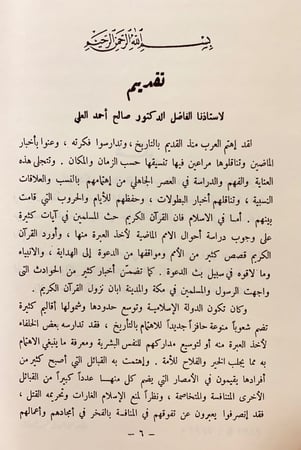 بسم الله الرحمن الرحيم
تقديم
لاستاذنا الفاضل الدكتور صالح أحمد العلي
لقد إهتم العرب منذ القديم بالتاريخ ، وتدارسوا فكرته ، وعنوا بأخبار
الماضين وتناقلوها مراعين فيها تنسيقها حسب الزمان والمكان . وتتجلى هذه
العناية والفهم والدراسة في العصر الجاهلي من إهتمامهم بالنسب والعلاقات
النسبية ، وتناقلهم أخبار البطولات ، وحفظهم للأيام والحروب التي قامت
بينهم . أما في الاسلام فان القرآن الكريم حث المسلمين في آيات كثيرة
على وجوب دراسة أحوال الامم الماضية لأخذ العبرة منها ، وأورد القرآن
الكريم قصص كثير من الأمم ومواقفها من الدعوة إلى الهداية ، والانبياء
وما لاقوه في سبيل بث الدعوة . كما تضمّن أخبار كثير من الحوادث التى
واجهت الرسول والمسلمين في مكة والمدينة ابان نزول القرآن الكريم .
وكان تكون الدولة الإسلامية وتوسع حدودها وشمولها أقاليم كثيرة
تضم شعوباً منوعة حافزاً جديداً للاهتمام بالتأريخ ، فقد تدارسه بعض الخلفاء
لأخذ العبرة منه أو لتوسيع مداركهم للنفس البشرية ومعرفة ما ينبغي الاهتمام
به مما يجلب الخير والفلاح للأمة . وإهتمت به القبائل التي أصبح كثير من
أفرادها يقيمون في الأمصار التي يضم كل منهـا عدداً كبيراً من القبائل
الأخرى المتنافسة والمتخاصمة ، ونظراً لمنع الإسلام الغارات وتحريمه القتل ،
فقد إنصرفوا يعبرون عن تفوقهم في المنافسة بالفخر في أمجادهم وأعمالهم
– ٦ –